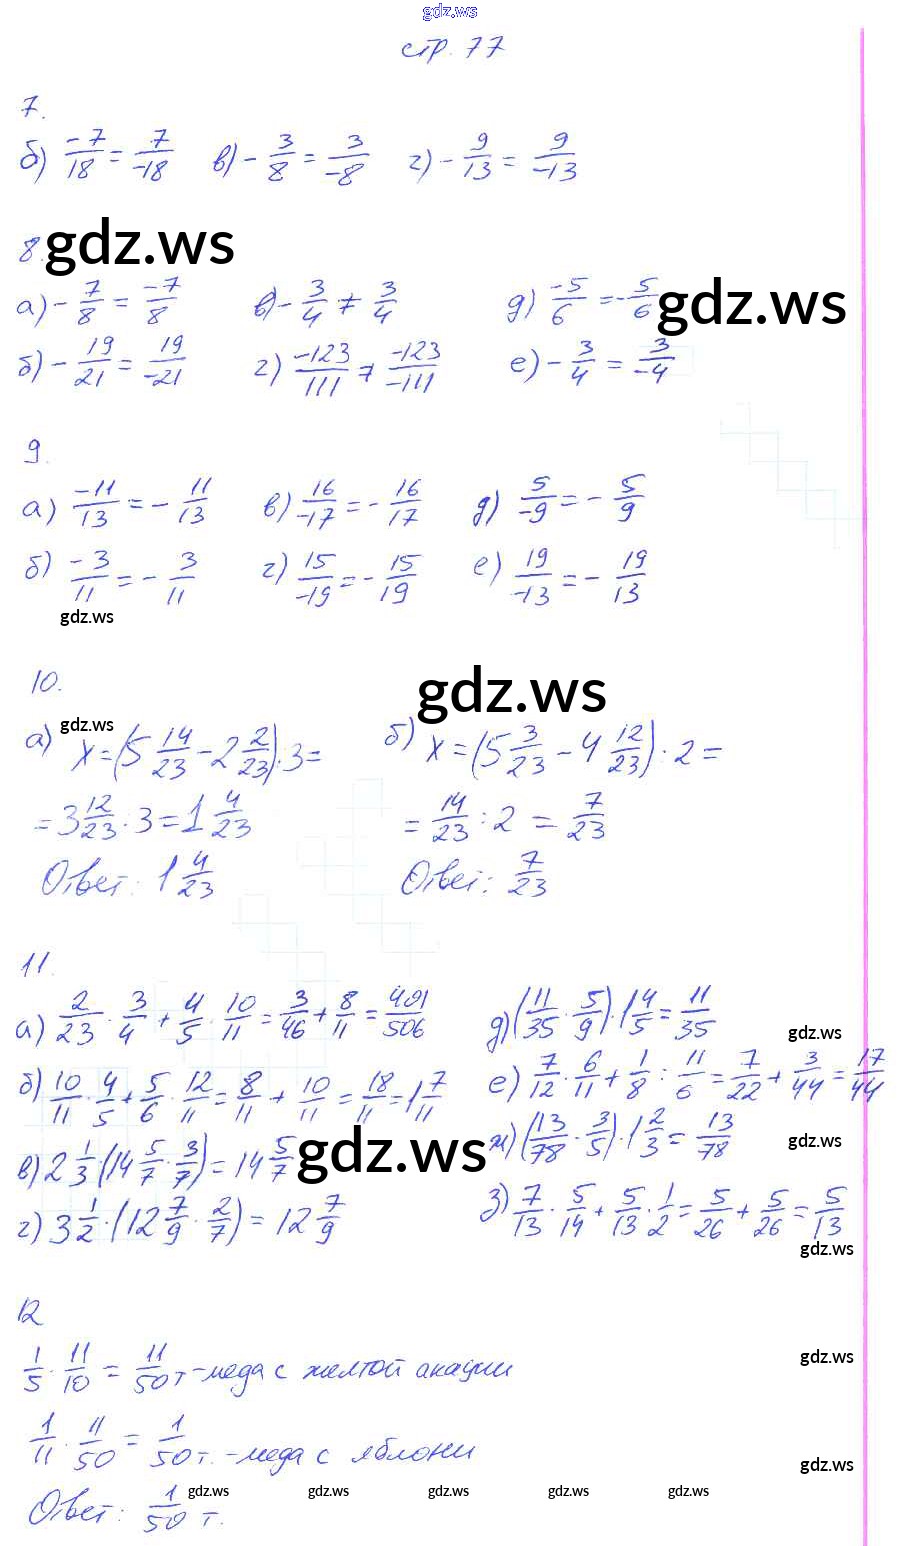 gdz.ws
стр. 77
7.
б) -7/18 = 7/-18 в) - 3/8 = 3/-8 г) - 9/13 = 9/-13
8. gdz.ws
а) - 7/8 = -7/8 в) - 3/4 ≠ 3/4 д) -5/6 = - 5/6 gdz.ws
б) - 19/21 = 19/-21 г) -123/111 ≠ -123/-111 е) - 3/4 = 3/-4
9.
а) -11/13 = - 11/13 в) 16/-17 = - 16/17 д) 5/-9 = - 5/9
б) -3/11 = - 3/11 г) 15/-19 = - 15/19 е) 19/-13 = - 19/13
gdz.ws
10. gdz.ws
а) gdz.ws x = (5 14/23 - 2 2/23) : 3 = б) x = (5 3/23 - 4 12/23) : 2 =
= 3 12/23 : 3 = 1 4/23 = 14/23 : 2 = 7/23
Ответ: 1 4/23 Ответ: 7/23
11.
а) 2/23 · 3/4 + 4/5 · 10/11 = 3/46 + 8/11 = 401/506 д) (11/35 · 5/9) · 1 4/5 = 11/35 gdz.ws
б) 10/11 · 4/5 + 5/6 · 12/11 = 8/11 + 10/11 = 18/11 = 1 7/11 е) 7/12 · 6/11 + 1/8 : 11/6 = 7/22 + 3/44 = 17/44
в) 2 1/3 · (14 5/7 · 3/7) = 14 5/7 gdz.ws ж) (13/78 · 3/5) · 1 2/3 = 13/78 gdz.ws
г) 3 1/2 · (12 7/9 · 2/7) = 12 7/9 з) 7/13 · 5/14 + 5/13 · 1/2 = 5/26 + 5/26 = 5/13
gdz.ws
12
1/5 · 11/10 = 11/50 т - меда с желтой акации gdz.ws
1/11 · 11/50 = 1/50 т. - меда с яблони gdz.ws
Ответ: 1/50 т. gdz.ws gdz.ws gdz.ws gdz.ws gdz.ws